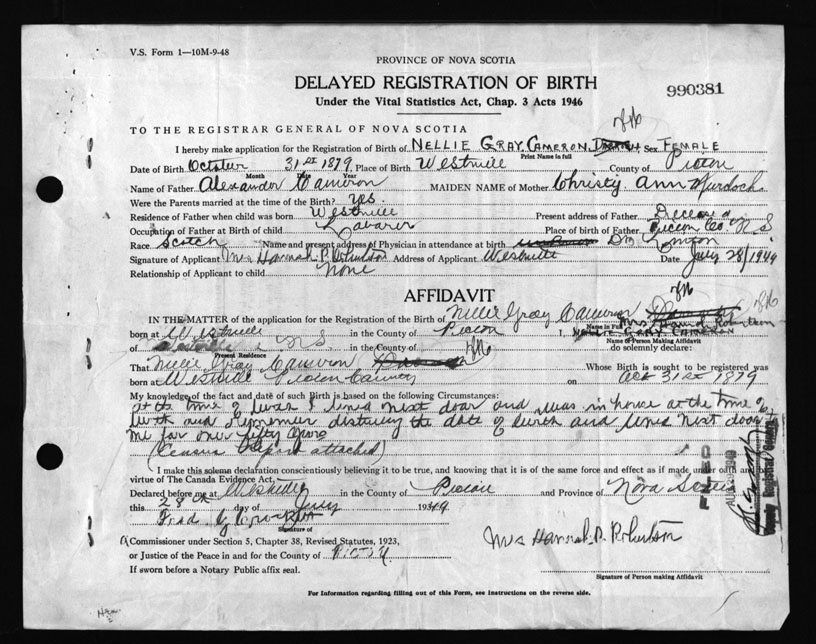 V.S. Form 1—10M-9-48
PROVINCE OF NOVA SCOTIA
DELAYED REGISTRATION OF BIRTH
990381
Under the Vital Statistics Act, Chap. 3 Acts 1946
TO THE REGISTRAR GENERAL OF NOVA SCOTIA
I hereby make application for the Registration of Birth of NELLIE GRAY CAMERON Sex FEMALE
Print Name in full
Date of Birth October 31st 1879, Place of Birth Westville County of Pictou
Month Date Year
Name of Father Alexander Cameron MAIDEN NAME of Mother Christy Ann Murdoch
Were the Parents married at the time of the Birth? Yes.
Residence of Father when child was born Westville Present address of Father Deceased
Occupation of Father at Birth of child Labarer Place of birth of Father Pictou Co. NS
Race Scotch Name and present address of Physician in attendance at birth Dr.
Signature of Applicant Mrs Hannah P. Robertson Address of Applicant Westville Date July 28/1949
Relationship of Applicant to child None
AFFIDAVIT
IN THE MATTER of the application for the Registration of the Birth of Nellie Gray Cameron
Name in Full
born at Westville in the County of Pictou I, Mrs Hannah Robertson
NELLIE GRAY CAMERON
Name of Person Making Affidavit
of NS do solemnly declare:
Present Residence
That Nellie Gray Cameron Whose Birth is sought to be registered was
born at Westville Pictou County on Oct 31st 1879
My knowledge of the fact and date of such Birth is based on the following Circumstances:
at the time of birth I lived next door and was in house at the time of
birth and remember the date of birth and lived next door
me for over fifty years
(Census report attached)
I make this solemn declaration conscientiously believing it to be true, and knowing that it is of the same force and effect as if made under oath and by
virtue of The Canada Evidence Act.
Declared before me at Westville in the County of Pictou and Province of Nova Scotia
this 28th day of July 1949
Fred
Signature of
A Commissioner under Section 5, Chapter 38, Revised Statutes, 1923,
or Justice of the Peace in and for the County of Pictou
If sworn before a Notary Public affix seal.
Mrs Hannah P. Robertson
Signature of Person making Affidavit
FILED
Deputy Registrar General
For Information regarding filling out of this Form, see Instructions on the reverse side.